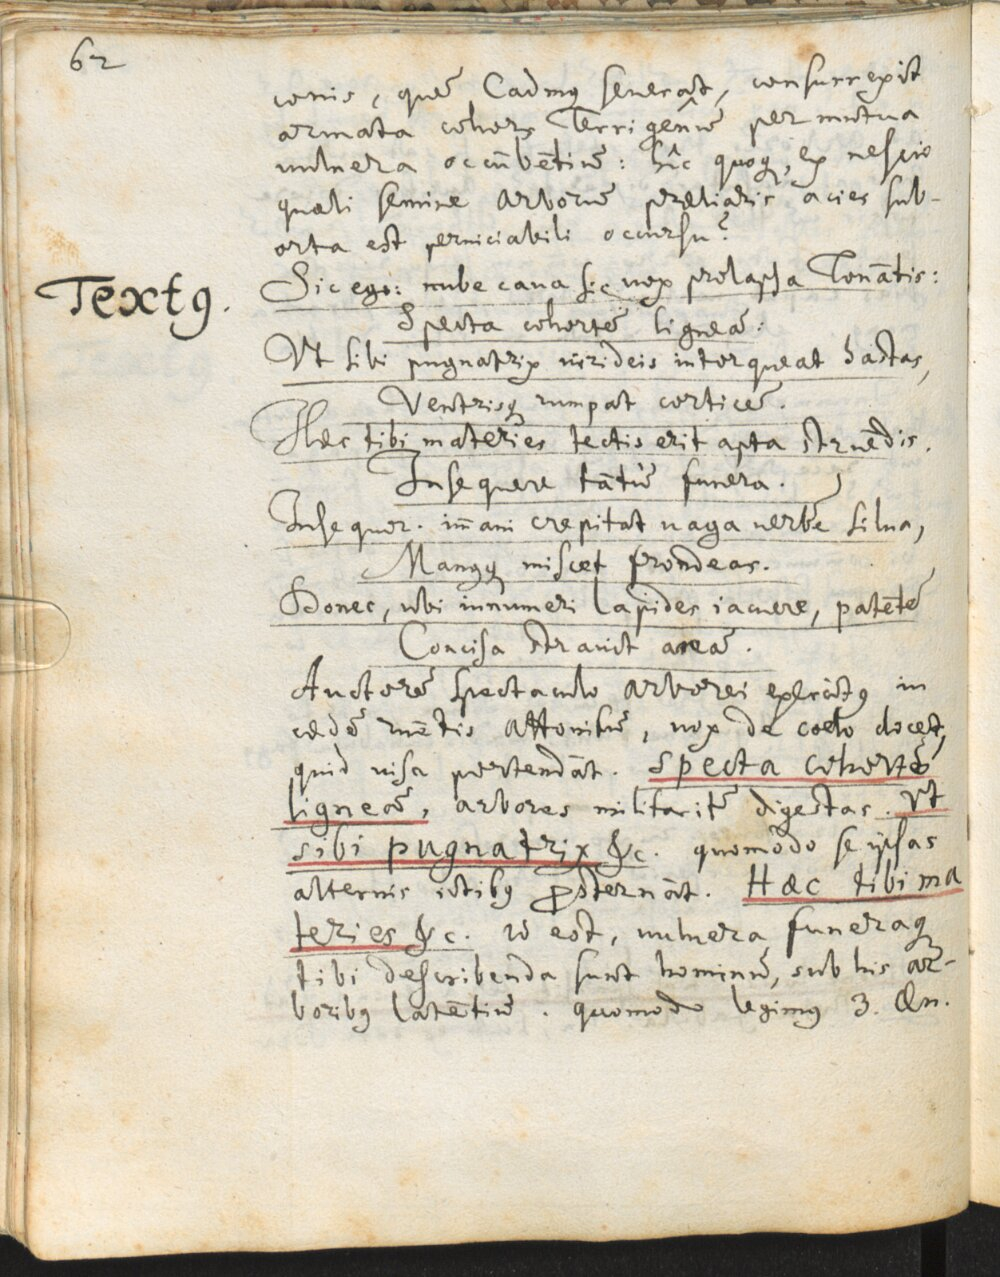 62
conis, quē Cadmꝰ severat, consurrexit
armata cohors Terrigenū per mutua
vulnera occūbētiū: hîc quoqꝫ, ex nescio
quali semine arborū præliaris acies sub-
orta est perniciabili occursu?
Textꝰ.
Sic ego: nube cava sic vox prolapsa Tonātis:
Specta cohortē ligneā:
Vt sibi pugnatrix virideis intorqueat hastas,
Ventrisqꝫ rumpat corticē.
Hæc tibi materies tectis erit apta struēdis.
Insequere tātū funera.
Insequor. im̄ani crepitat vaga verbere silva,
Manuqꝫ miscet frondeas.
Donec, ubi innumeri lapides iacuere, patētē
Concisa stravit areā.
Auctorē spectaculo arborei exercitꝰ in
cædē ruētis attonitū, vox de coelo docet,
quid visa portendāt. Specta cohortē
ligneā, arbores militaritē digestas. Vt
sibi pugnatrix &c. quomodo se ipsas
alternis ictibꝰ ꝓsternāt. Hæc tibi ma
teries &c. id est, vulnera funeraqꝫ
tibi describenda sunt hominū, sub his ar-
boribꝰ latētiū. quomodo legimꝰ 3. Æn.